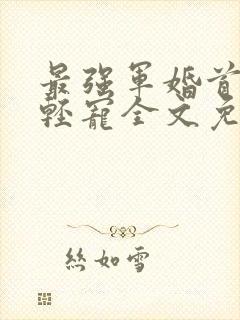 最强军婚首
轻宠全文免
絲如雪